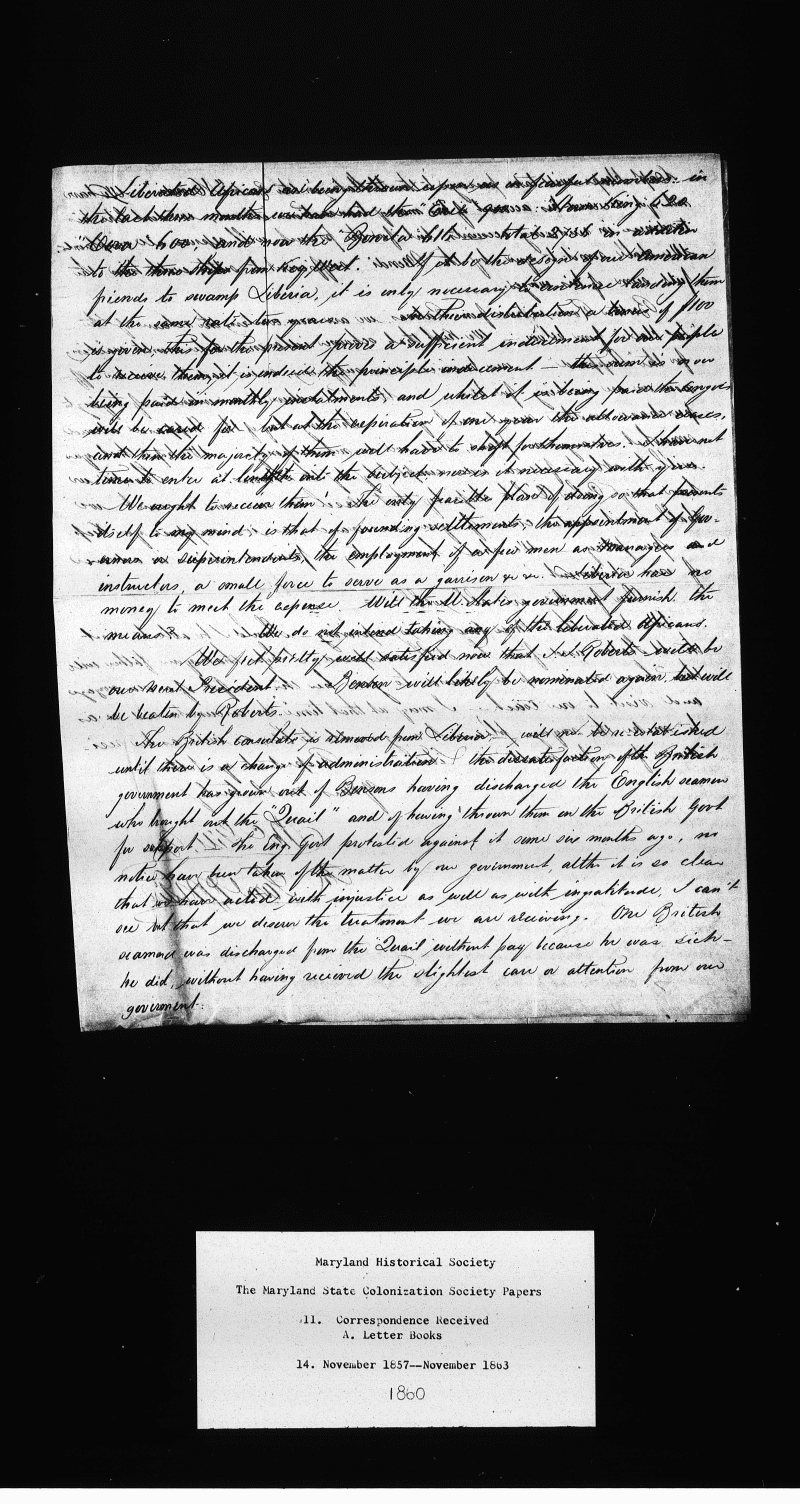 Liberated Africans as being thrown upon us in fearful numbers: in
the last three months we have had the "Erie's" 
"Cora" 600 and now the "Bonita"
to the three ships from Key West. If it be the design of our American
friends to swamp Liberia, it is only necessary to continue sending them
at the same rate two years. In their distribution a bonus of $100
is given, this for the present proves a sufficient inducement for our people
to receive them, it is indeed the principle inducement — the sum is now
being paid in monthly instalments and whilst it is being paid the congoes
will be cared for but at the expiration of one year the allowance ceases,
and then the majority of them will have to shift for themselves. I have not
time to enter at length into the subject nor is it necessary with you.
We ought to receive them! The only feasible plan of doing so that presents
itself to my mind is that of founding settlements, the appointment of Gov-
ernors or superintendents, the employment of a few men as managers and
instructors, a small force to serve as a garrison &c &c. Liberia has no
money to meet the expense. Will the U. States government furnish the
means. We do not intend taking any of the liberated Africans.
We feel pretty well satisfied now that J. J. Roberts will be
our next President. Benson will likely be nominated again, but will
be beaten by Roberts.
The British consulate is removed from Liberia will not be re-established
until there is a change of administration the dissatisfaction of the British
government has grown out of Bensons having discharged the English seamen
who brought out the "Quail" and of having thrown them on the British Govt
for support. The Eng. Govt protested against it some six months ago, no
notice have been taken of the matter by our government, altho it is so clear
that we have acted with injustice as well as with ingratitude, I can't
see but that we deserve the treatment we are receiving. One British
seaman was discharged from the Quail without pay because he was sick—
he did, without having received the slightest care or attention from our
government.
Maryland Historical Society
The Maryland State Colonization Society Papers
11. Correspondence Received
A. Letter Books
14. November 1857--November 1863
1860